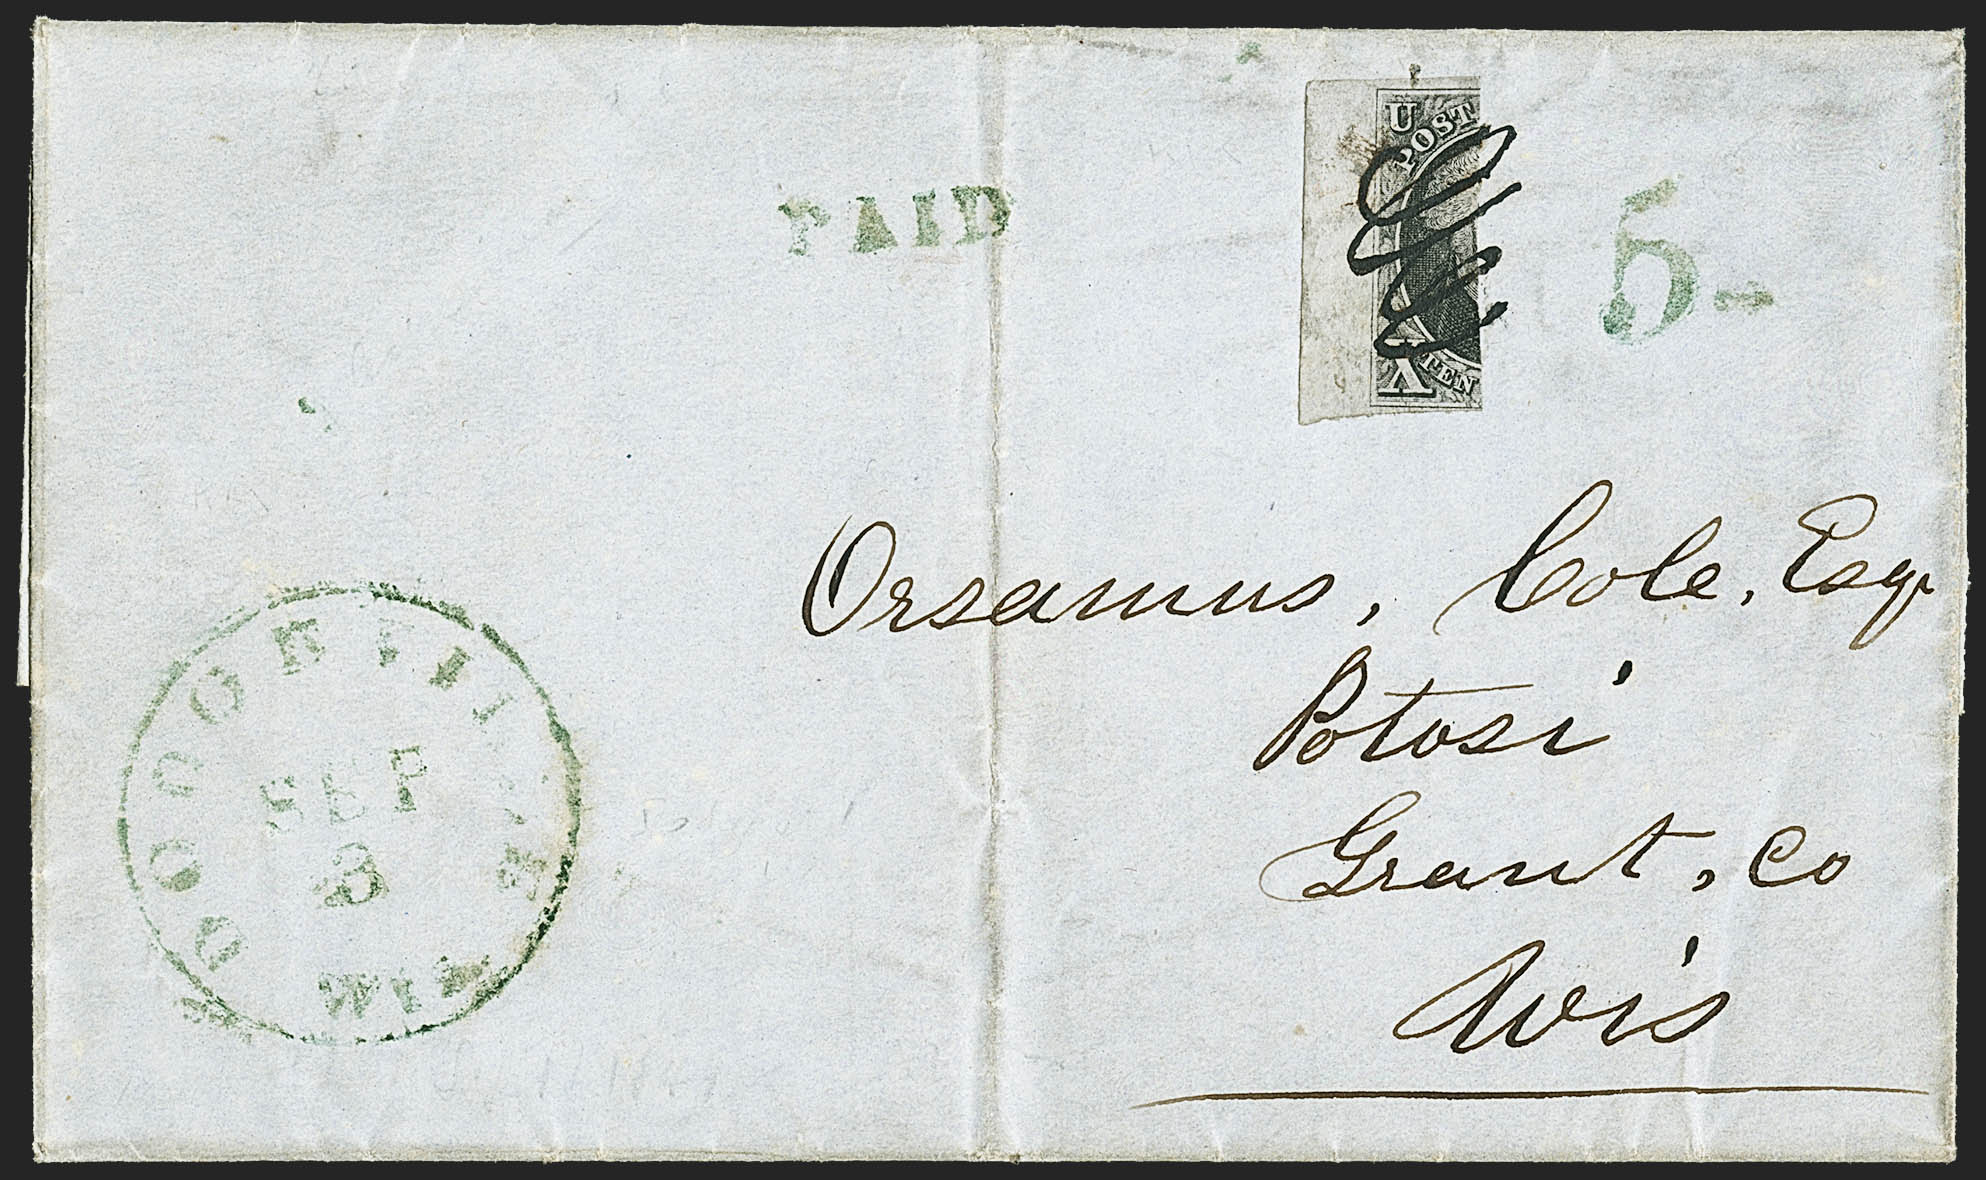 U POST
PAID
5
X TEN
Orsamus, Cole, Esqr
Potosi
Grant, Co
Wis
DODGEVILLE
SEP
3
WIS